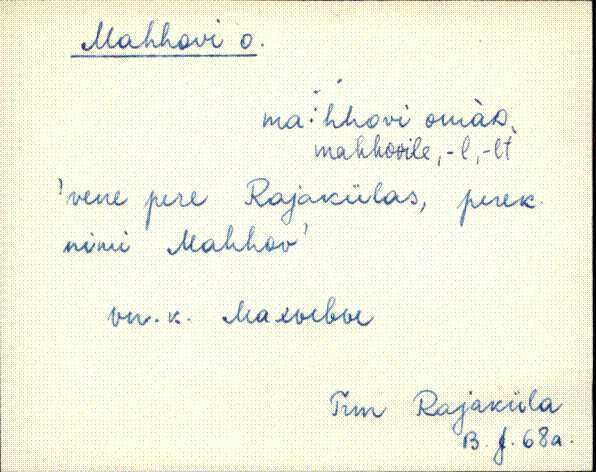 Mahhovi o.
ma:hhovi omàs,
mahhovile, -l, -lt
'vene pere Rajakülas, perek.
nimi Mahhov'
vn. k. Маховое
Trm Rajaküla
B. J. 68a.